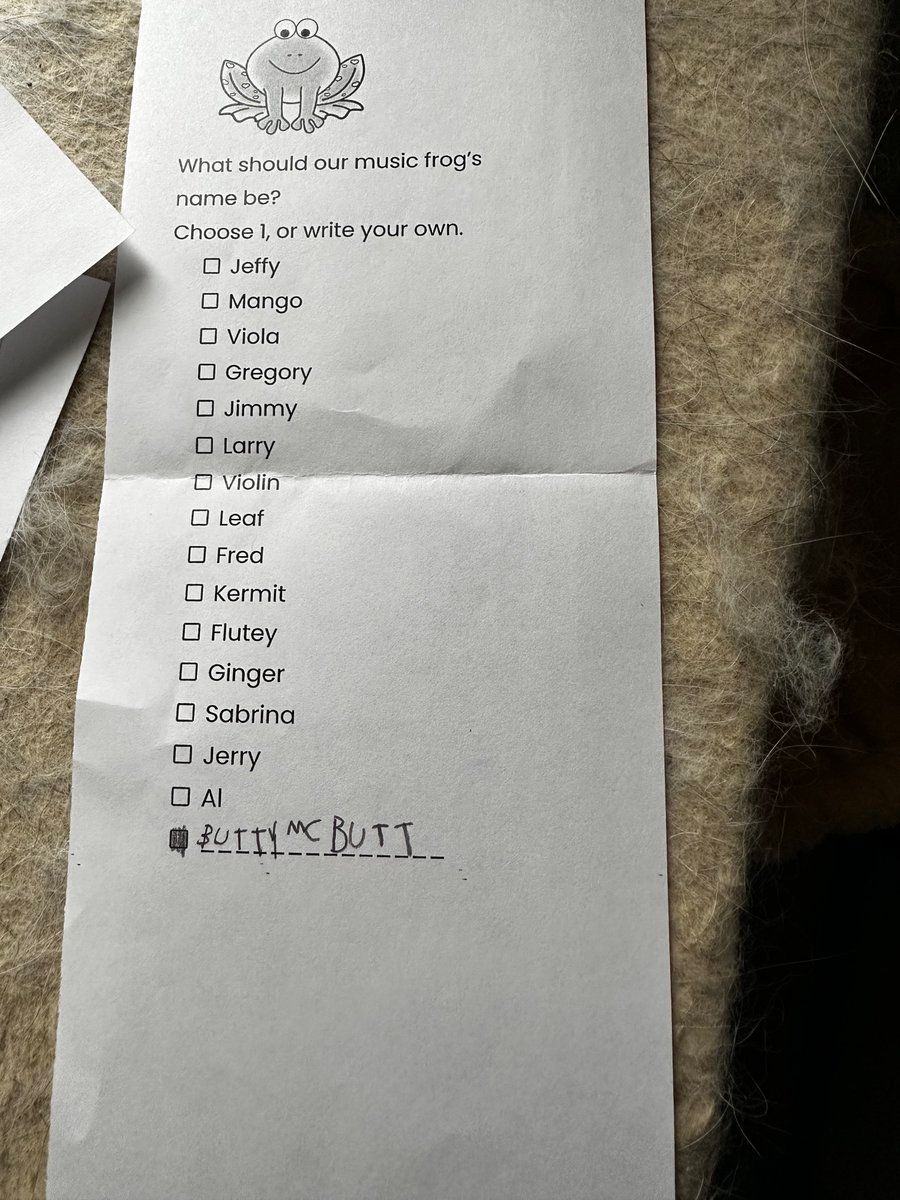 What should our music frog's
name be?
Choose 1, or write your own.
Jeffy
Mango
Viola
Gregory
Jimmy
Larry
Violin
Leaf
Fred
Kermit
Flutey
Ginger
Sabrina
Jerry
Al
BUTTY MC BUTT